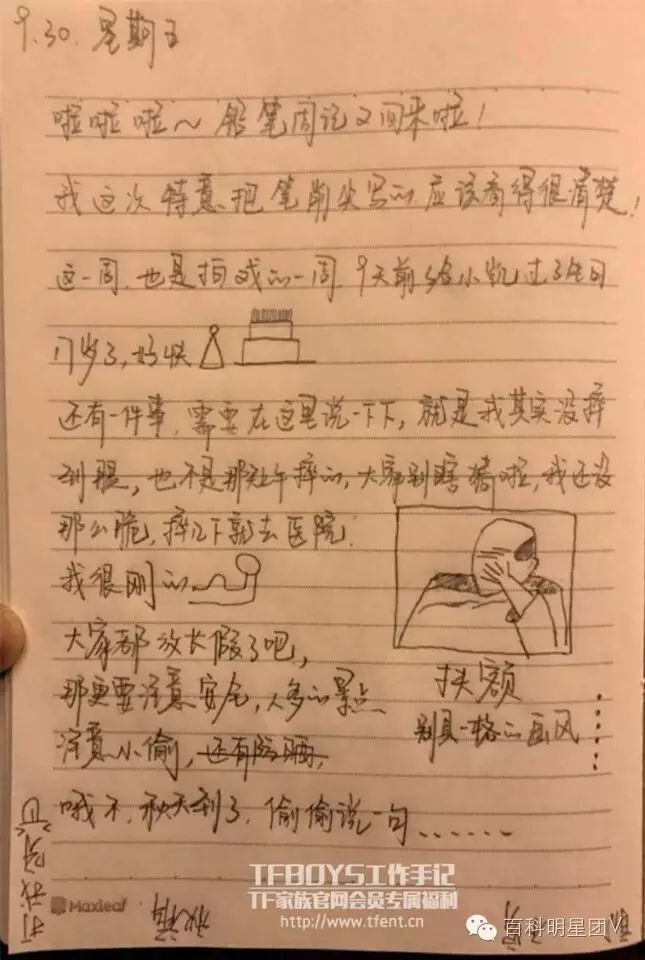 9.30. 星期五
啦啦啦～铅笔周记又回来啦！
我这次特意把笔削尖写的应该看得很清楚！
这一周,也是拍戏的一周.9天前给小凯过了生日
17岁了,好快
还有一件事.需要在这里说一下下,就是我其实没摔
到腿,也不是那天上午摔的,大家别瞎猜啦,我还没
那么脆,摔几下就去医院.
我很刚的
大家都放长假了吧,
那更要注意安全,人多的景点
注意小偷,还有防晒,
哦不,秋天到了,偷偷说一句......
扶额
别具一格的画风
......
打我呀
Maxleaf
TFBOYS工作手记
TF家族官网会员专属福利
http://www.tfent.cn
百科明星团V